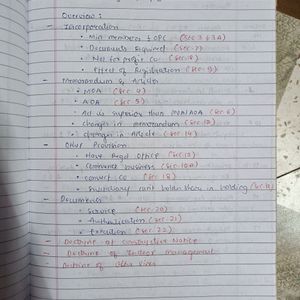 Overview :
- Incorporation
• Min members & OPC (Sec 3 & 3A)
• Documents Required (Sec 7)
• Not for profit Co (Sec 8)
• Effect of Registration (Sec 9)
- Memorandum & Article
• MOA (Sec 4)
• AOA (Sec 5)
• Act is superior than MOA/AOA (Sec 6)
• changes in memorandum (Sec 13)
• changes in Article (Sec 14)
- Other Provision
• Have Regd Office (Sec 12)
• Commence business (Sec 10A)
• convert Co (Sec 18)
• Subsidiary cant hold shares in holding (Sec 19)
- Documents
• Service (Sec 20)
• Authentication (Sec 21)
• Execution (Sec 22)
- Doctrine of Constructive Notice
- Doctrine of Indoor management
- Doctrine of Ultra Vires